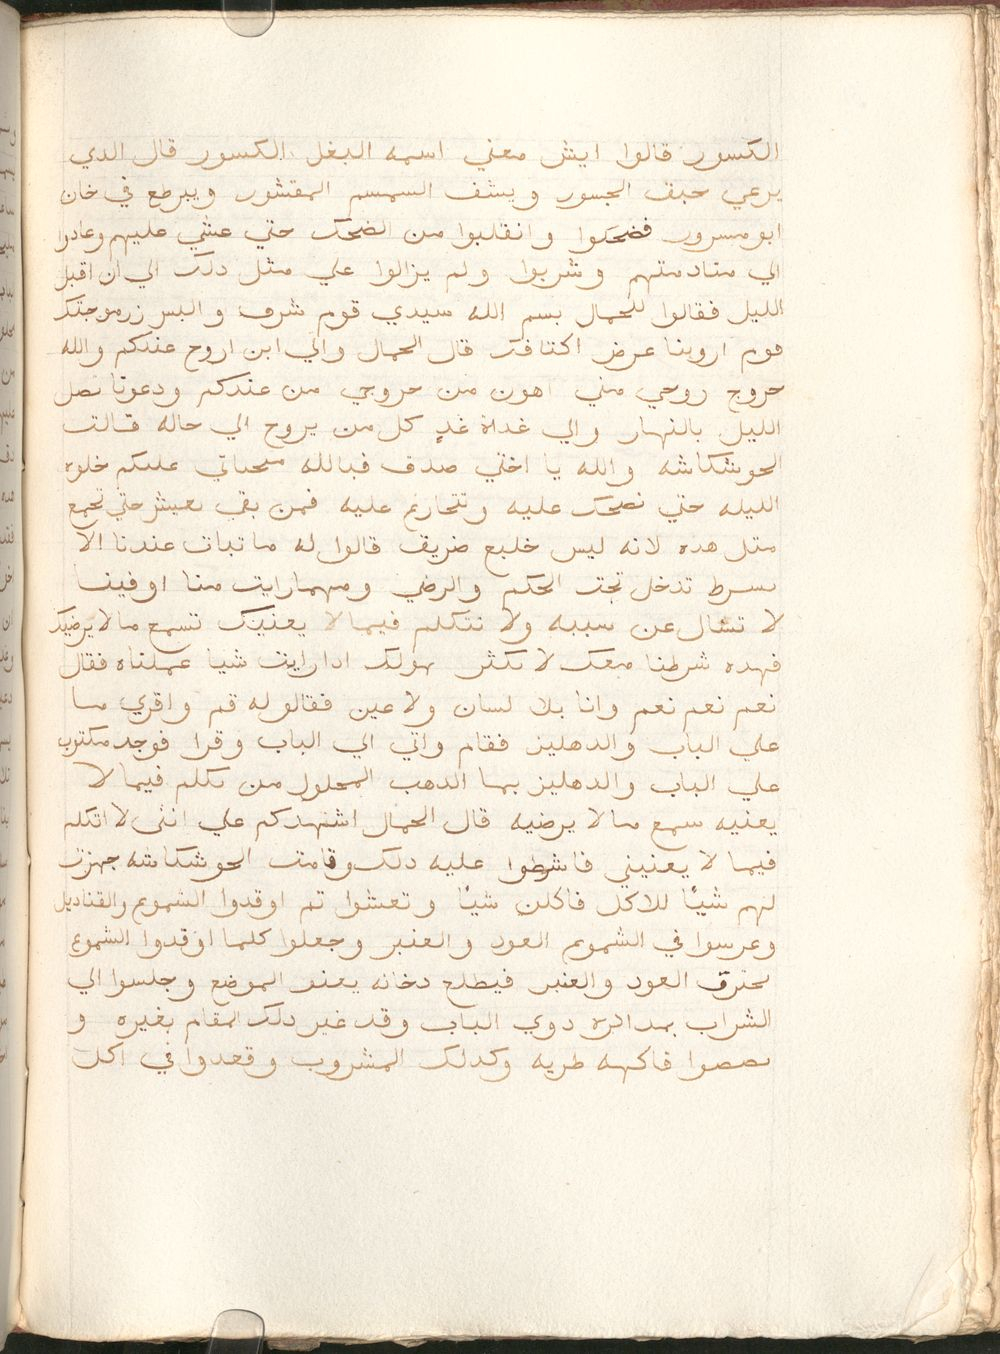 الكسور قالوا ايش معني اسمه البغل الكسور قال الدي
يرعي حبق الجسور ويشف السمسم المقشور ويبرطع في خان
ابو مسرور فضحكوا وانقلبوا من الضحك حتي عشي عليهم وعادوا
الي منادمتهم وشربوا ولم يزالوا علي مثل دلك الي ان اقبل
الليل فقالوا للحمال بسم الله سيدي قوم شرف والبس زرموجتك
قوم اروينا عرض اكتافك قال الحمال والي اين اروح عندكم والله
خروج روحي مني اهون من خروجي من عندكم ودعونا نصل
الليل بالنهار والي غداة غدٍ كل من يروح الي حاله قالت
الحوشكاشه والله يا اختي صدق فبالله بحياتي عليكم خلوه
الليله حتي نضحك عليه ونتخارع عليه فمن بقي يعيش حتي نجمع
متل هده لانه ليس خليع ضريف قالوا له ما تبات عندنا الا
بسرط تدخل تحت الحكم والرضي ومهما رايت منا او فينا
لا تسال عن سببه ولا تتكلم فيما لا يعنيك تسمع ما لا يرضيك
فهده شرطنا معك لا تكثر هولك ادا رايت شيا عملناه فقال
نعم نعم نعم وانا بلا لسان ولا عين فقالو له قم واقري ما
علي الباب والدهليز فقام واتي الي الباب وقرا فوجد مكتوب
علي الباب والدهليز بما الدهب المحلول من تكلم فيما لا
يعنيه سمع ما لا يرضيه قال الحمال اشهدكم علي انني لا اتكلم
فيما لا يعنيني فاشرطوا عليه دلك وقامت الحوشكاشه جهزت
لهم شيًا للاكل فاكلن شيًا وتعشوا تم اوقدوا الشموع والقناديل
وغرسوا في الشموع العود والعنبر وجعلوا كلما اوقدوا الشموع
يحترق العود والعنبر فيطلع دخانه يعنو الموضع وجلسوا الي
الشراب دوي الباب وقد غير دلك المقام بغيره و
نصصوا فاكهه طريه وكدلك المشروب وقعدوا في اكل